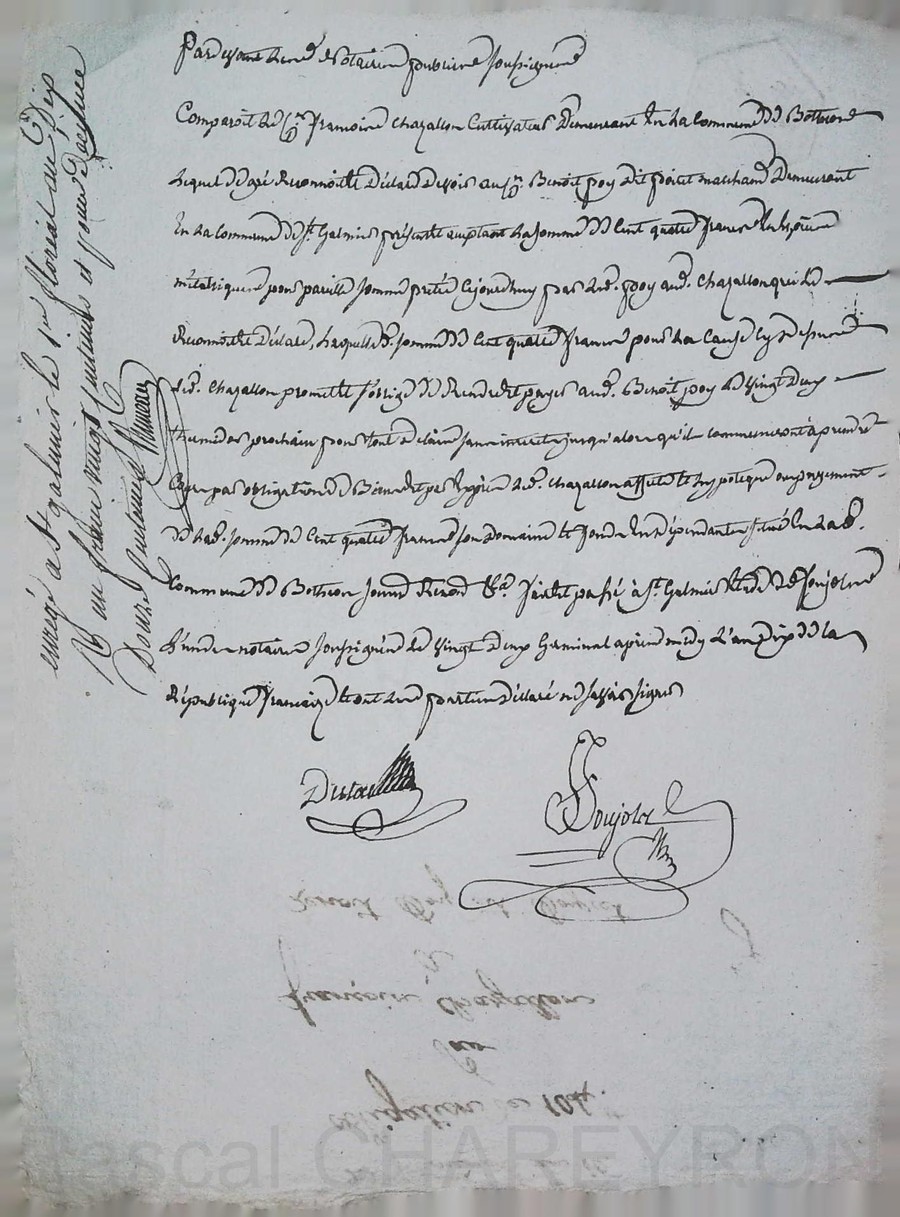 Pardevant les notaires publics soussignés
Comparoit le Cn françois chazallon Cultivateur Demeurant En la Commune de Botheon
Lequel de gré Reconnoit et Déclare Devoir au Cn Benoit poy dit poiret marchand Demeurant
En la Commune de St Galmier présent acceptant la somme de Cent quatre francs
métalliques pour pareille somme pretée Cejourdhuy par led. poy aud. Chazallon qui le
Reconnoit et Déclare, Laquelle d. somme de Cent quatre francs pour la Cause Cy dessus
Led. Chazallon promet et s'oblige de Rendre et payer aud. Benoit poy Le Vingt Deux
prochain pour tout délai sans interet jusqu'alors qu'ils commenceront à prendre
Cours par obligation de Biens et par Exprès Led. Chazallon affecte et hypoteque au payement
de lad. somme de Cent quatre francs son Domaine et fonds En dépendants situé En lad.
Commune de Botheon fait et passé à St Galmier Etude de Soujolas
L'un des notaires soussignés Le Vingt Deux Germinal après midy L'an Dix de la
République française et ont les parties Déclaré ne savoir signer
Soujolas
enregé a St galmier le 1er floreal an Dix
R un franc vingt centimes et pour Decime
Douze Centimes
Benoit Poy dit Poyret
à
françois Chazallon
par
obligation de 104
Pascal CHAREYRON